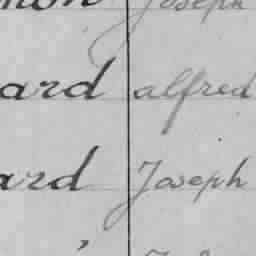 non Joseph
ard alfred
ard Joseph